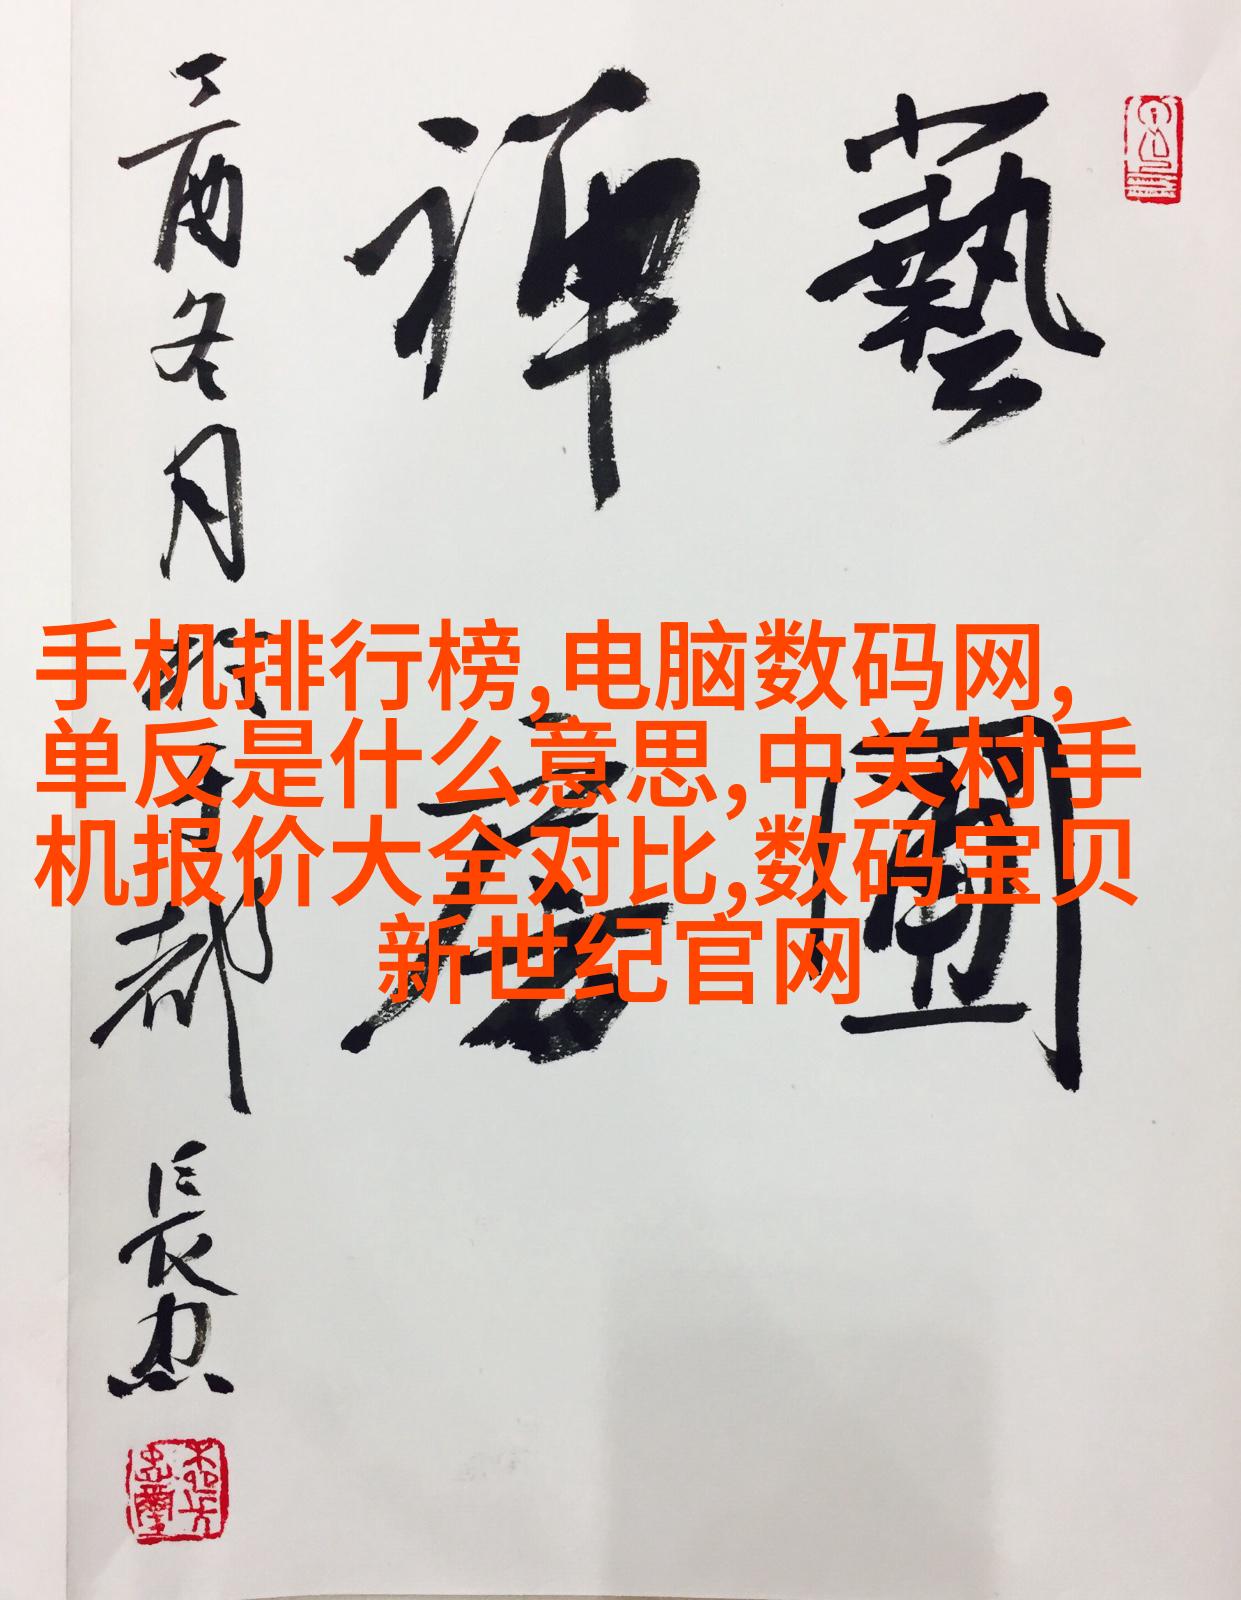 藝
禪
手机排行榜,电脑数码网,
单反是什么意思,中关村手
机报价大全对比,数码宝贝
新世纪官网
冬月
都
長忠